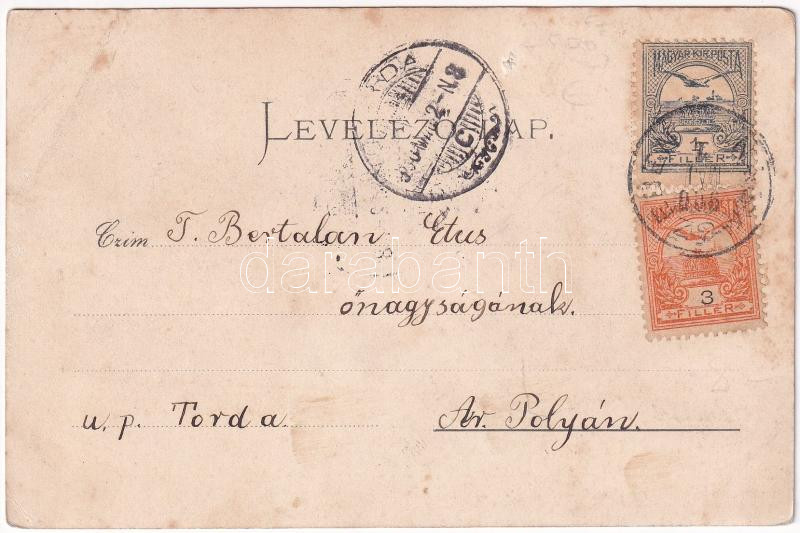 LEVELEZŐ-LAP.
MAGYAR KIR. POSTA
1
FILLÉR
3
FILLÉR
Czim T. Bertalan Etus
darabanth
őnagyságának.
u. p. Torda. Ar. Polyán.